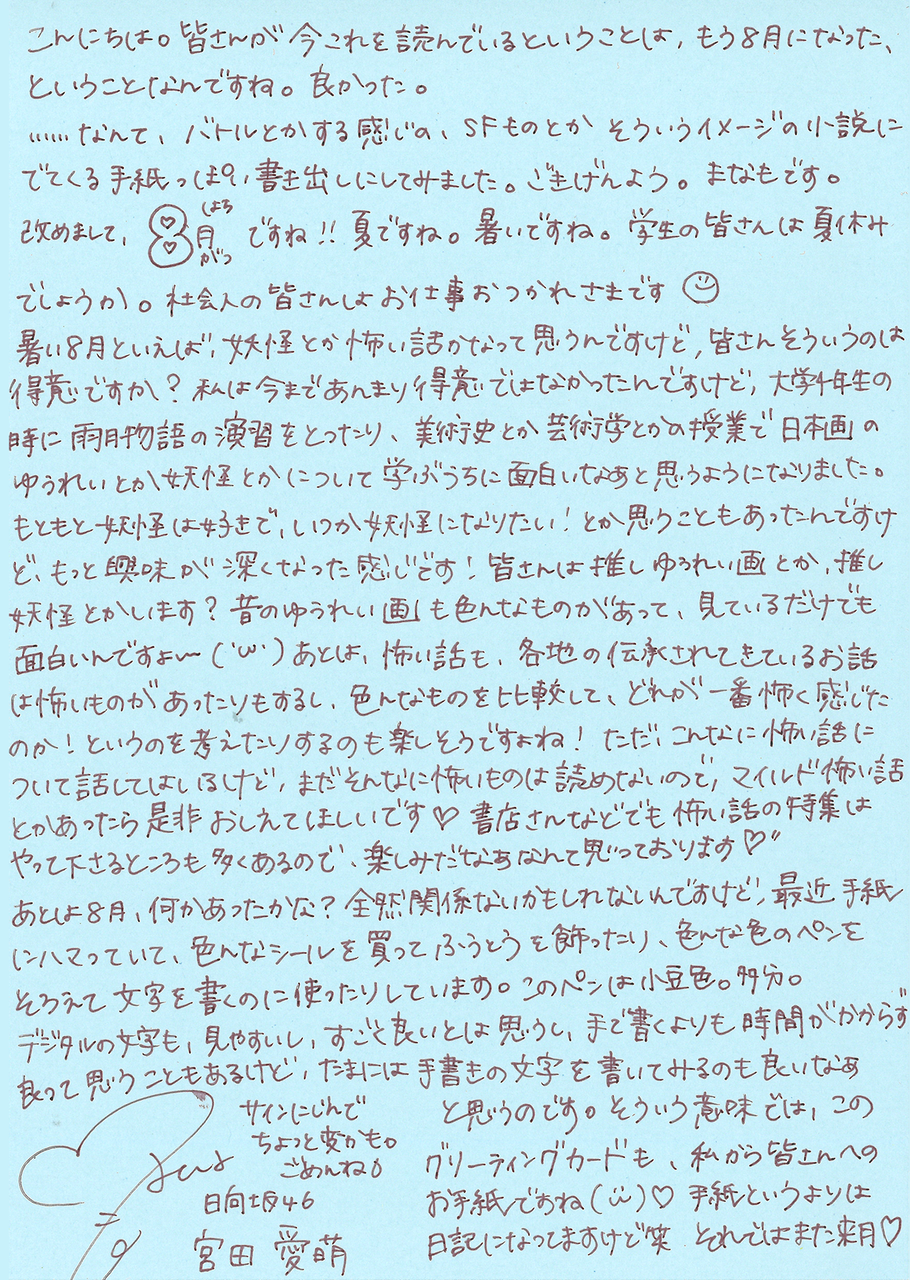 こんにちは。皆さんが今これを読んでいるということは、もう8月になった、
ということなんですね。良かった。
……なんて、バトルとかする感じの、SFものとかそういうイメージの小説に
でてくる手紙っぽい書き出しにしてみました。ごきげんよう。まなもです。
改めまして、8月 はちがつ ですね!!夏ですね。暑いですね。学生の皆さんは夏休み
でしょうか。社会人の皆さんはお仕事おつかれさまです
暑い8月といえば、妖怪とか怖い話かなって思うんですけど、皆さんそういうのは
得意ですか?私は今まであんまり得意ではなかったんですけど、大学4年生の
時に雨月物語の演習をとったり、美術史とか芸術学とかの授業で日本画の
ゆうれいとか妖怪とかについて学ぶうちに面白いなあと思うようになりました。
もともと妖怪は好きで、いつか妖怪になりたい!とか思うこともあったんですけ
ど、もっと興味が深くなった感じです!皆さんは推しゆうれい画とか、推し
妖怪とかいます?昔のゆうれい画も色んなものがあって、見ているだけでも
面白いんですよ〜(˙ω˙)あとは、怖い話も、各地の伝承されてきているお話
は怖いものがあったりもするし、色んなものを比較して、どれが一番怖く感じた
のか!というのを考えたりするのも楽しそうですよね!ただ、こんなに怖い話に
ついて話してはいるけど、まだそんなに怖いものは読めないので、マイルド怖い話
とかあったら是非おしえてほしいです♡書店さんなどでも怖い話の特集は
やって下さるところも多くあるので、楽しみだなあなんて思っております♡〃
あとは8月、何かあったかな?全然関係ないかもしれないんですけど、最近手紙
にハマっていて、色んなシールを買ってふうとうを飾ったり、色んな色のペンを
そろえて文字を書くのに使ったりしています。このペンは小豆色。多分。
デジタルの文字も、見やすいし、すごく良いとは思うし、手で書くよりも時間がかからず
良って思うこともあるけど、たまには手書きの文字を書いてみるのも良いなあ
と思うのです。そういう意味では、この
グリーティングカードも、私から皆さんへの
お手紙ですね(¨̮)♡手紙というよりは
日記になってますけど笑 それではまた来月♡
サインにじんで
ちょっと変かも。
ごめんね
日向坂46
宮田愛萌